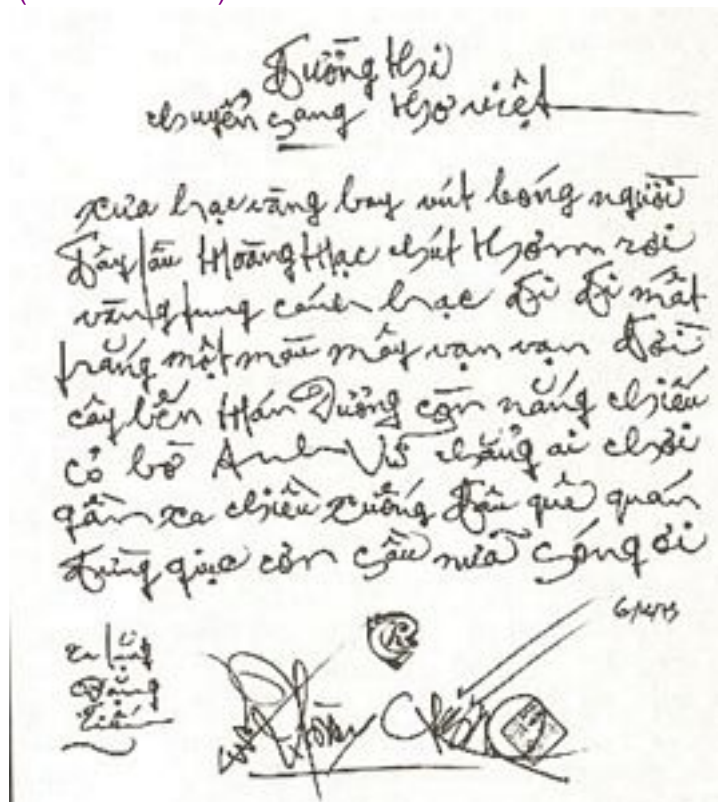 Đường thi
chuyển sang thơ việt
xưa hạc vàng bay vút bóng người
Đây lầu Hoàng Hạc chút thơm rơi
vàng tung cánh hạc đi đi mất
trắng một màu mây vạn vạn đời
cây bến Hán Dương còn nắng chiếu
cỏ bờ Anh Vũ chẳng ai chơi
gần xa chiều xuống đâu quê quán
đừng giục cơn sầu nữa sóng ơi
Đặng
Tiến
Vũ Hoàng Chương